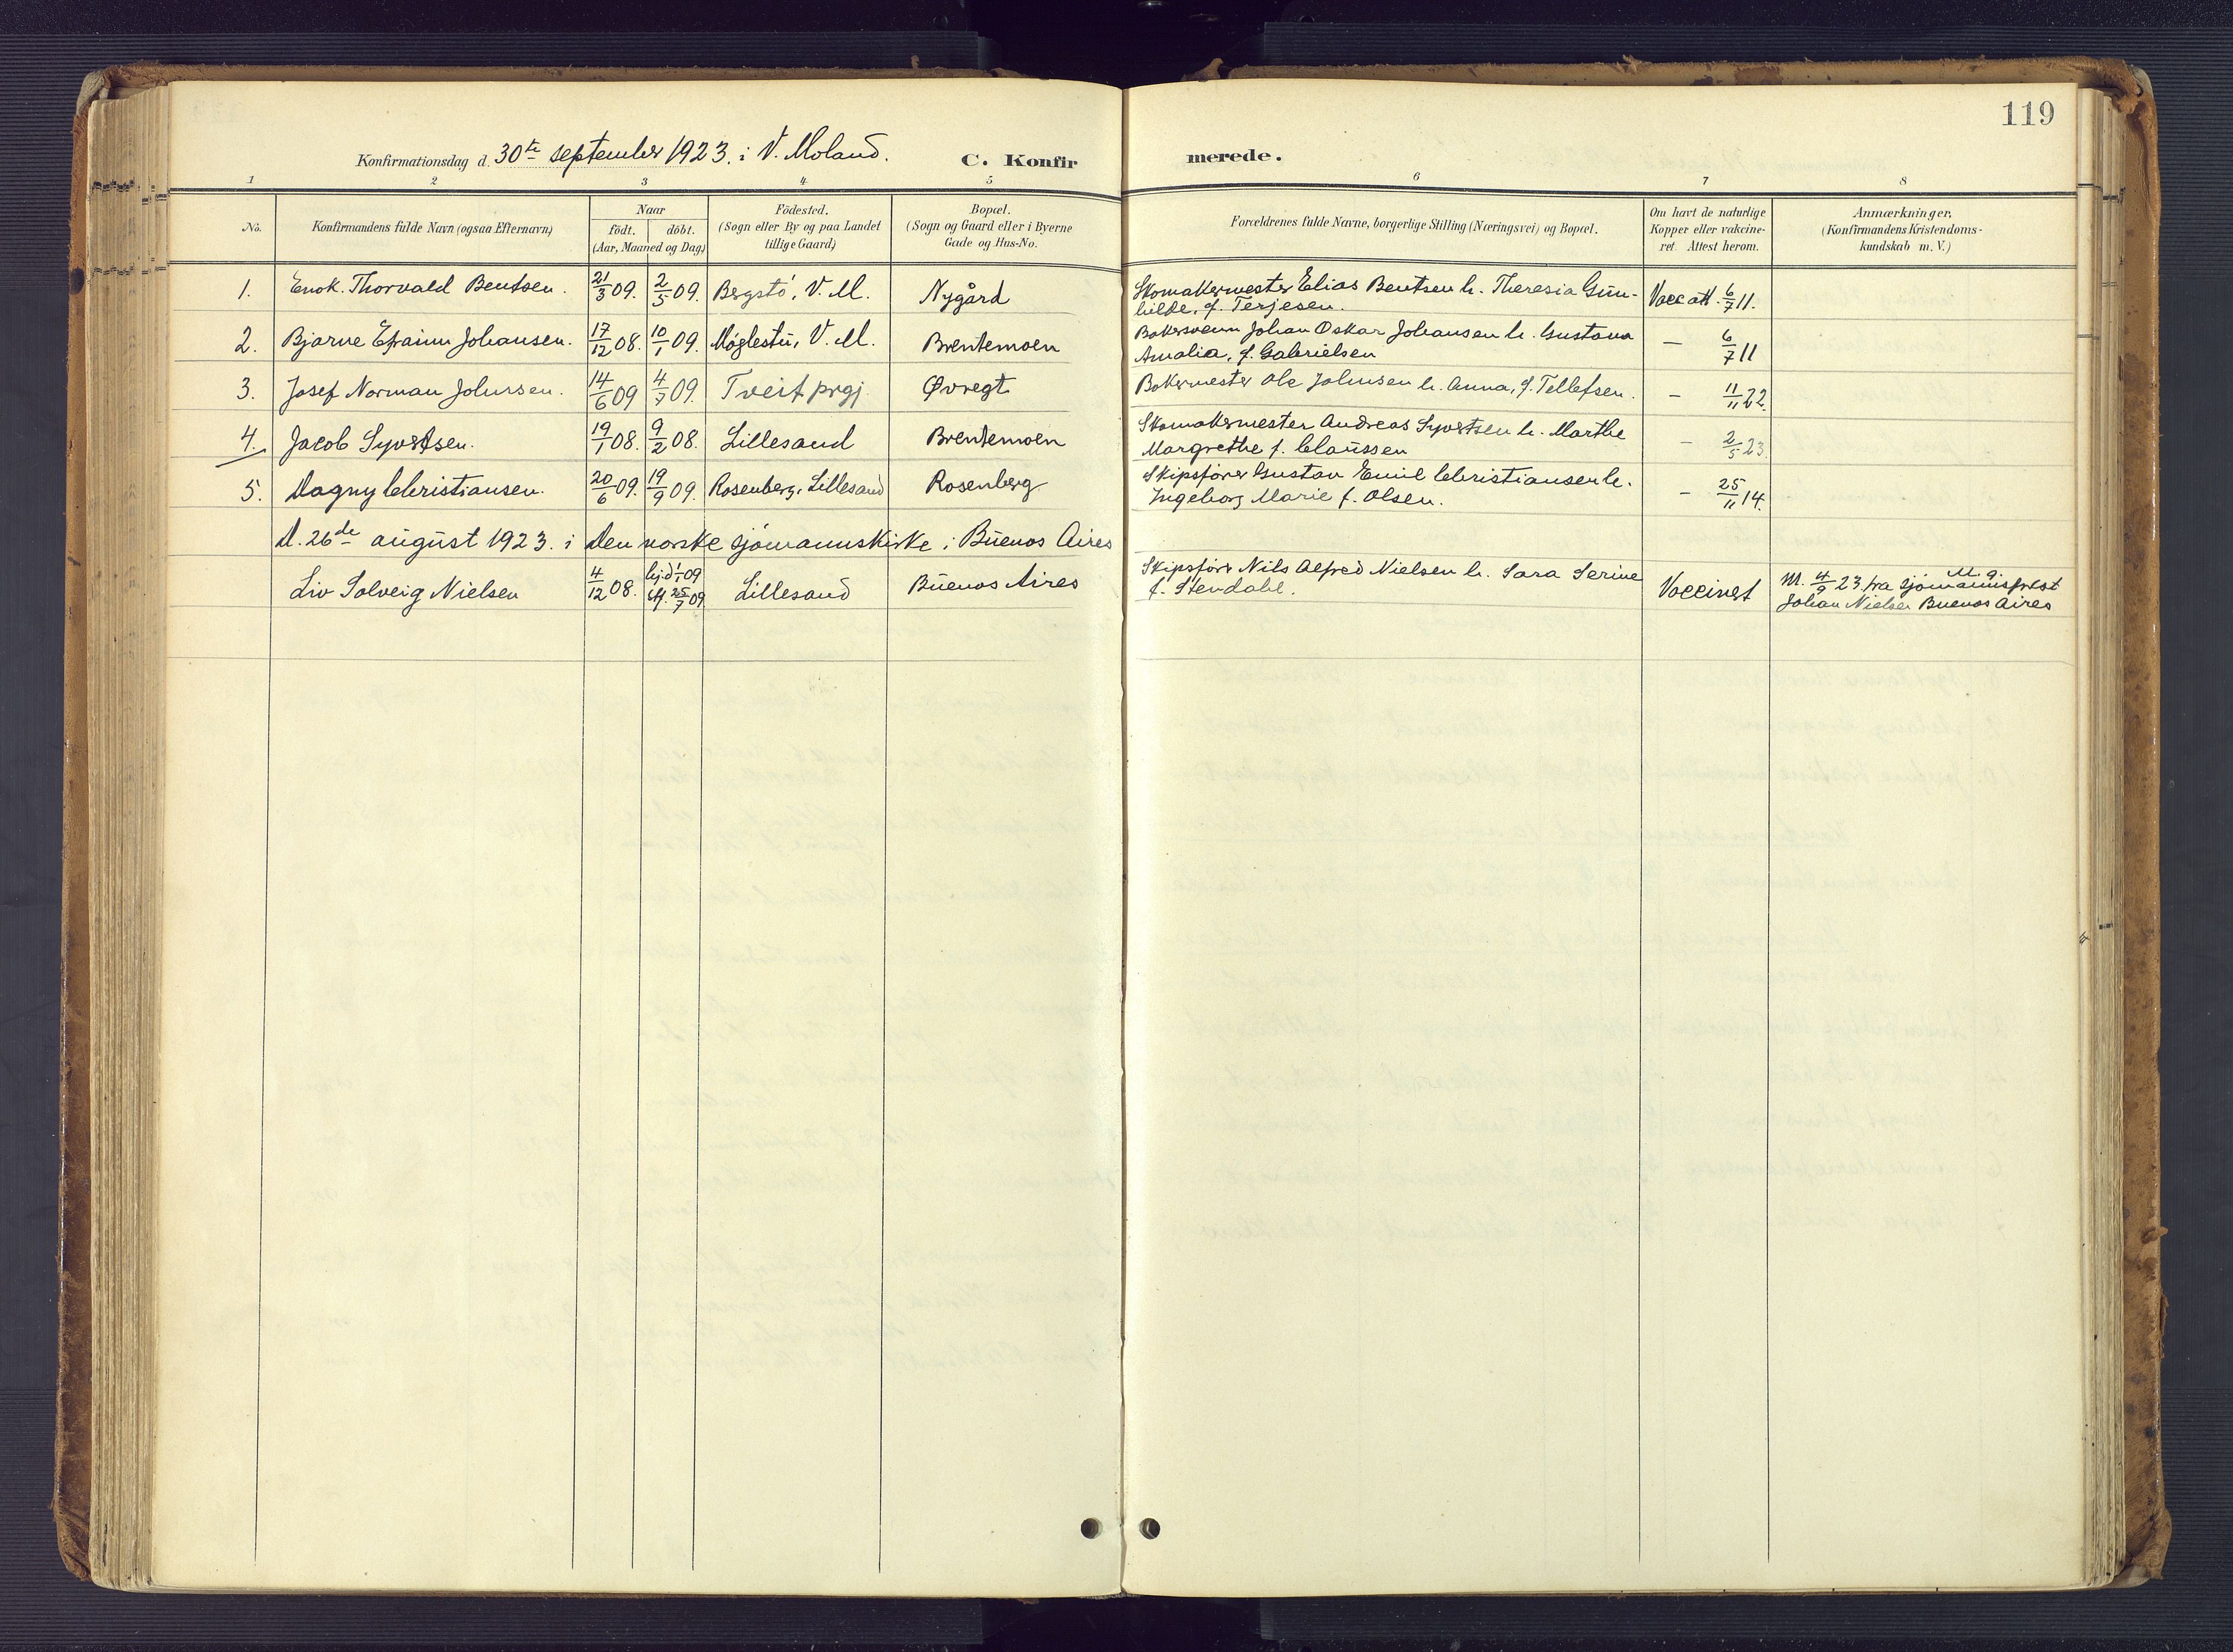 119
Konfirmationsdag d. 30te september 1923. i V. Moland.
C. Konfirmerede.
1 2 3 4 5 6 7 8
No.
Konfirmandens fulde Navn (ogsaa Efternavn)
Naar
födt. döbt.
(Aar, Maaned og Dag)
Födested.
(Sogn eller By og paa Landet
tillige Gaard)
Bopæl.
(Sogn og Gaard eller i Byerne
Gade og Hus-No.
Forældrenes fulde Navne, borgerlige Stilling (Næringsvei) og Bopæl.
Om havt de naturlige
Kopper eller vakcine-
ret. Attest herom.
Anmærkninger,
(Konfirmandens Kristendoms-
kundskab m. V.)
1. Enok. Thorvald Bentsen. 21/3 09. 2/5 09. Bergstö, V. M. Nygård
Skomakermester Elias Bentsen h. Theresia Gun-
hilde, f. Terjesen.
Vacc att. 6/7 11.
2. Bjarne Efraim Johansen. 17/12 08. 10/1 09. Möglestu, V. M. Brentemoen
Bakersvenn Johan Oskar Johansen h. Gustava
Amalia, f. Gabrielsen
— 6/7 11
3. Josef Norman Johnsen. 14/6 09 4/7 09. Tveit prgj. Øvregt
Bakermester Ole Johnsen h. Anna, f. Tellefsen.
— 11/11 22.
4. Jacob Syvertsen. 19/1 08. 9/2 08. Lillesand Brentemoen
Skomakermester Andreas Syvertsen h. Marthe
Margrethe f. Claussen
— 2/5 23.
5. Dagny Christiansen. 20/6 09. 19/9 09. Rosenberg, Lillesand Rosenberg
Skipsförer Gustav Emil Christiansen h.
Ingeborg Marie f. Olsen.
— 25/11 14.
D. 26de august 1923. i Den norske sjömannskirke i Buenos Aires
Liv Solveig Nielsen 4/12 08. hj.d 1/1 09 stf. 25/7 09 Lillesand Buenos Aires
Skipsförer Nils Alfred Nielsen h. Sara Serine
f. Stendahl.
Vaccinert
M. 4/9 23 fra sjömannsprest
Johan Nielsen Buenos Aires
M. g.